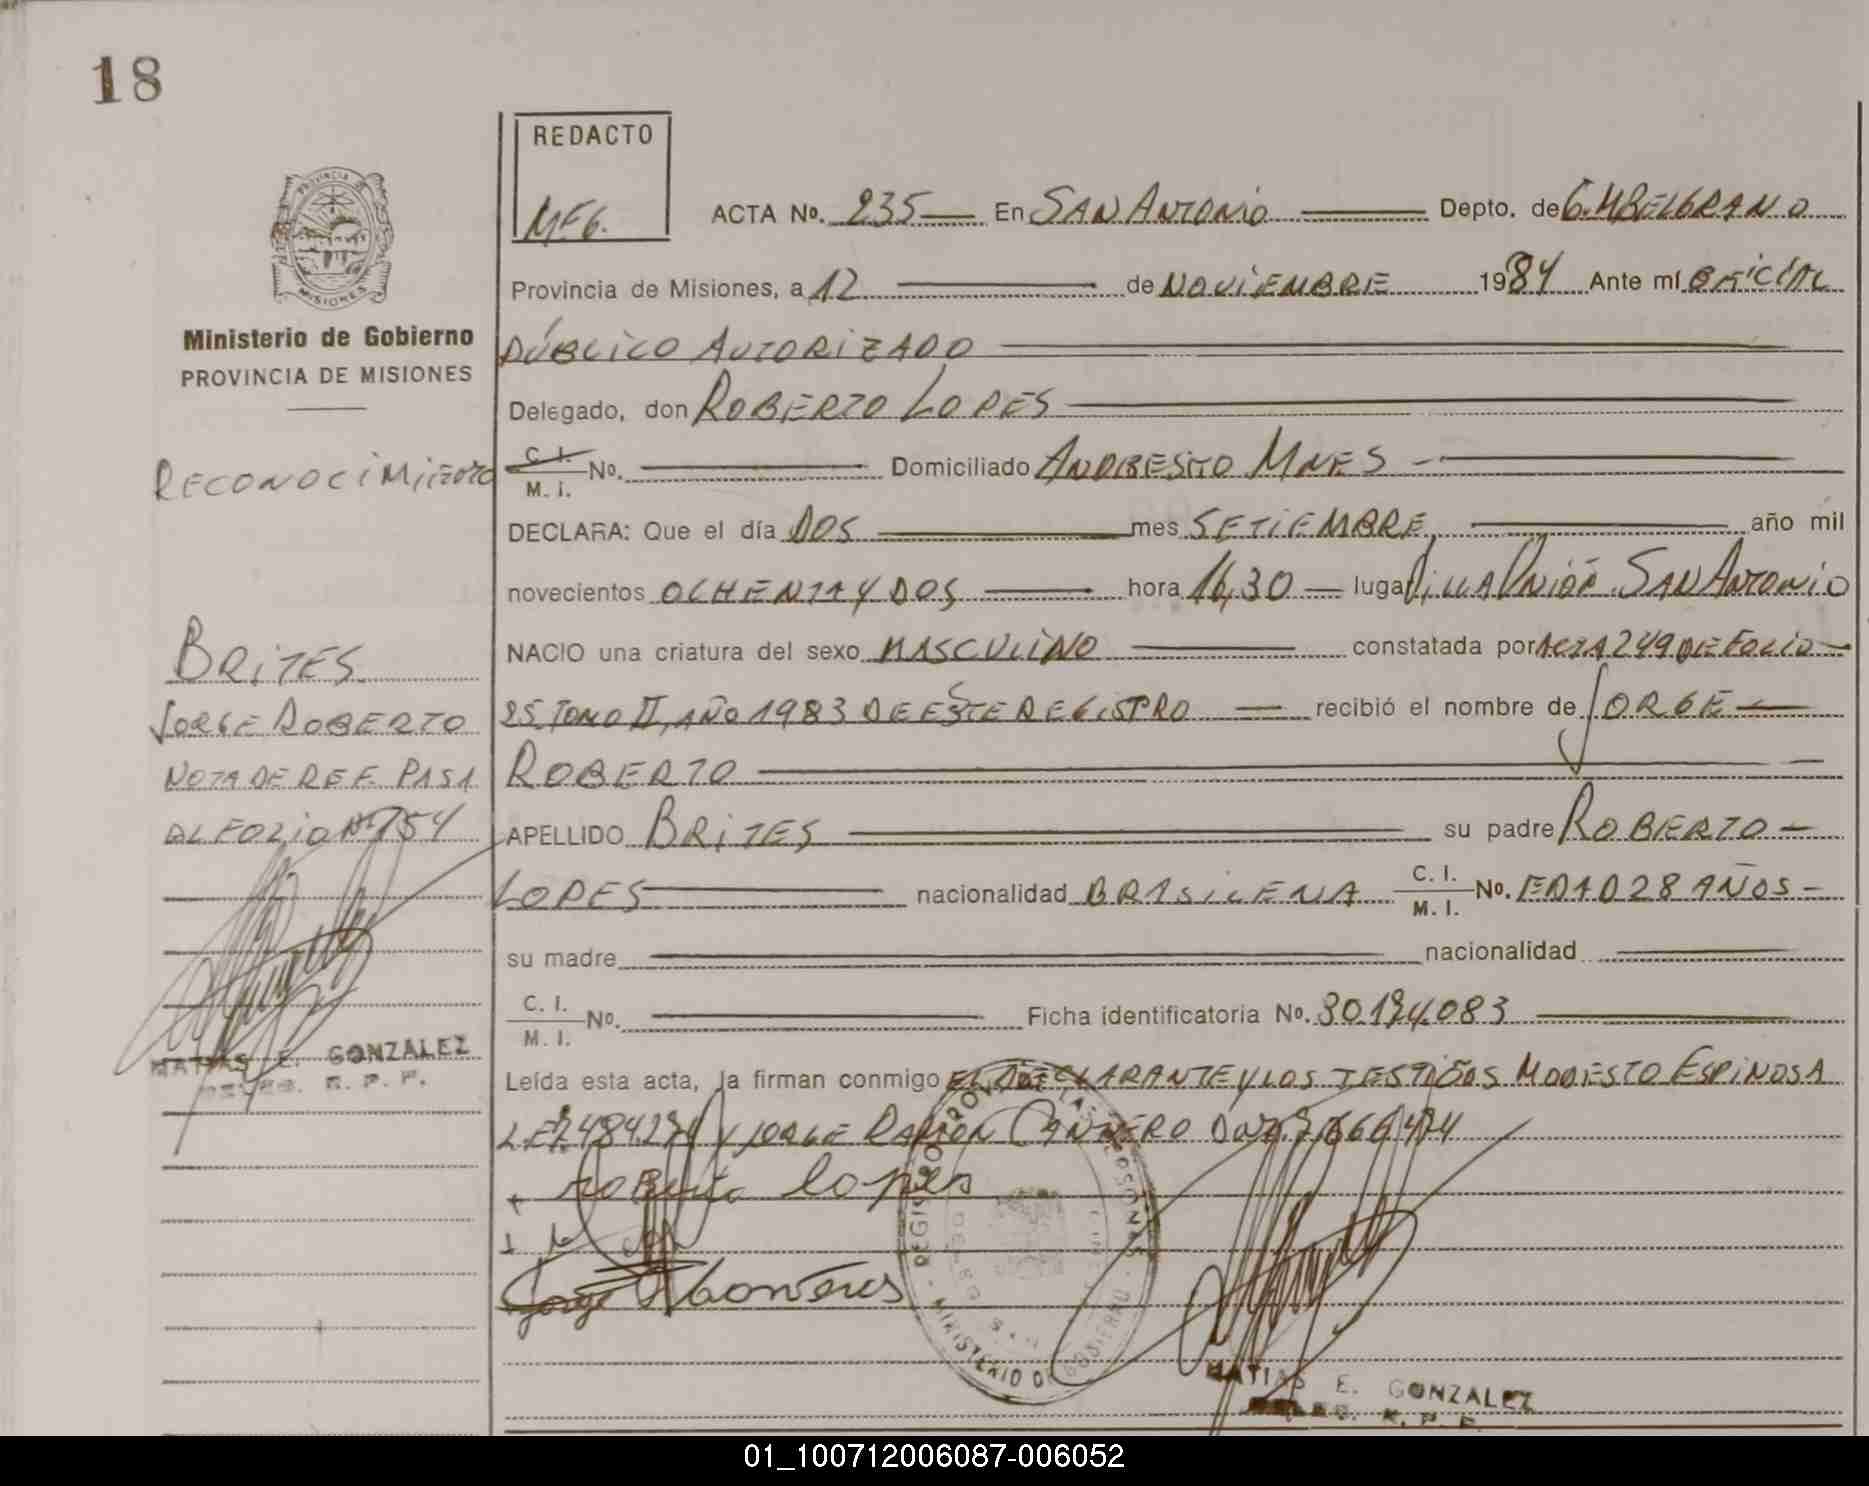 18
REDACTO
M.F.G.
ACTA No. 235 En SAN ANTONIO Depto. de G. M BELGRANO
PROVINCIA DE MISIONES
Provincia de Misiones, a 12 de NOVIEMBRE 1984 Ante mí OFICIAL
Ministerio de Gobierno
PROVINCIA DE MISIONES
PÚBLICO AUTORIZADO
Delegado, don ROBERTO LOPES
RECONOCIMIENTO
C. I. M. I. No. Domiciliado ANDRESITO MNES
DECLARA: Que el día DOS mes SETIEMBRE año mil
novecientos OCHENTA Y DOS hora 16,30 lugar VILLA UNIÓN SAN ANTONIO
BRITES
NACIO una criatura del sexo MASCULINO constatada por ACTA 249 DE FOLIO
JORGE ROBERTO
25 TOMO II, AÑO 1983 DE ESTE REGISTRO recibió el nombre de JORGE
NOTA DE REF. PASA
ROBERTO
AL FOLIO Nº 154
APELLIDO BRITES su padre ROBERTO
LOPES nacionalidad BRASILENA C. I. M. I. No. EDAD 28 AÑOS
su madre nacionalidad
C. I. M. I. No. Ficha identificatoria No. 30.194.083
MATIAS E. GONZALEZ
R. P. P.
Leída esta acta, la firman conmigo EL DECLARANTE Y LOS TESTIGOS MODESTO ESPINOSA
Y JORGE RAMÓN
Roberto lopes
Jorge
MINISTERIO DE GOBIERNO
MATIAS E. GONZALEZ
R. P. P.
01_100712006087-006052